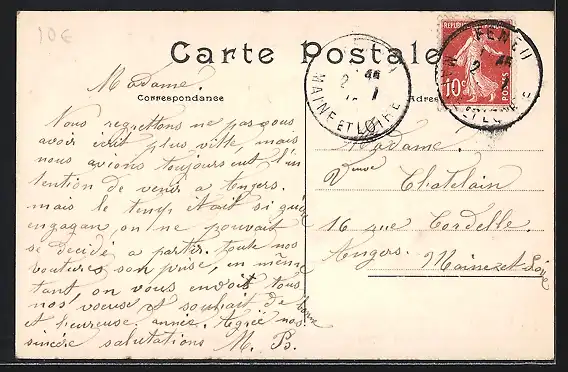 10€
Carte Postale
Correspondance
Adres
Madame.
Nous regrettons ne pas vous
avoir écrit plus vitte, mais
nous avions toujours eut l'in
tention de venir a Angers.
mais le temp était si guère
engagan, on ne pouvait
se decidé a partir. toute nos
son prise, en même
tant on vous envoit tous
nos voeuse et souhait de bonne
et heureuse année. Agrée nos
sincère salutations M. B.
FENEU
2
MAINE ET LOIRE
REPUBLIQUE
POSTES
10c
Madame.
Veuve Chatelain
16 rue Cordelle.
Angers. Maine et Loire